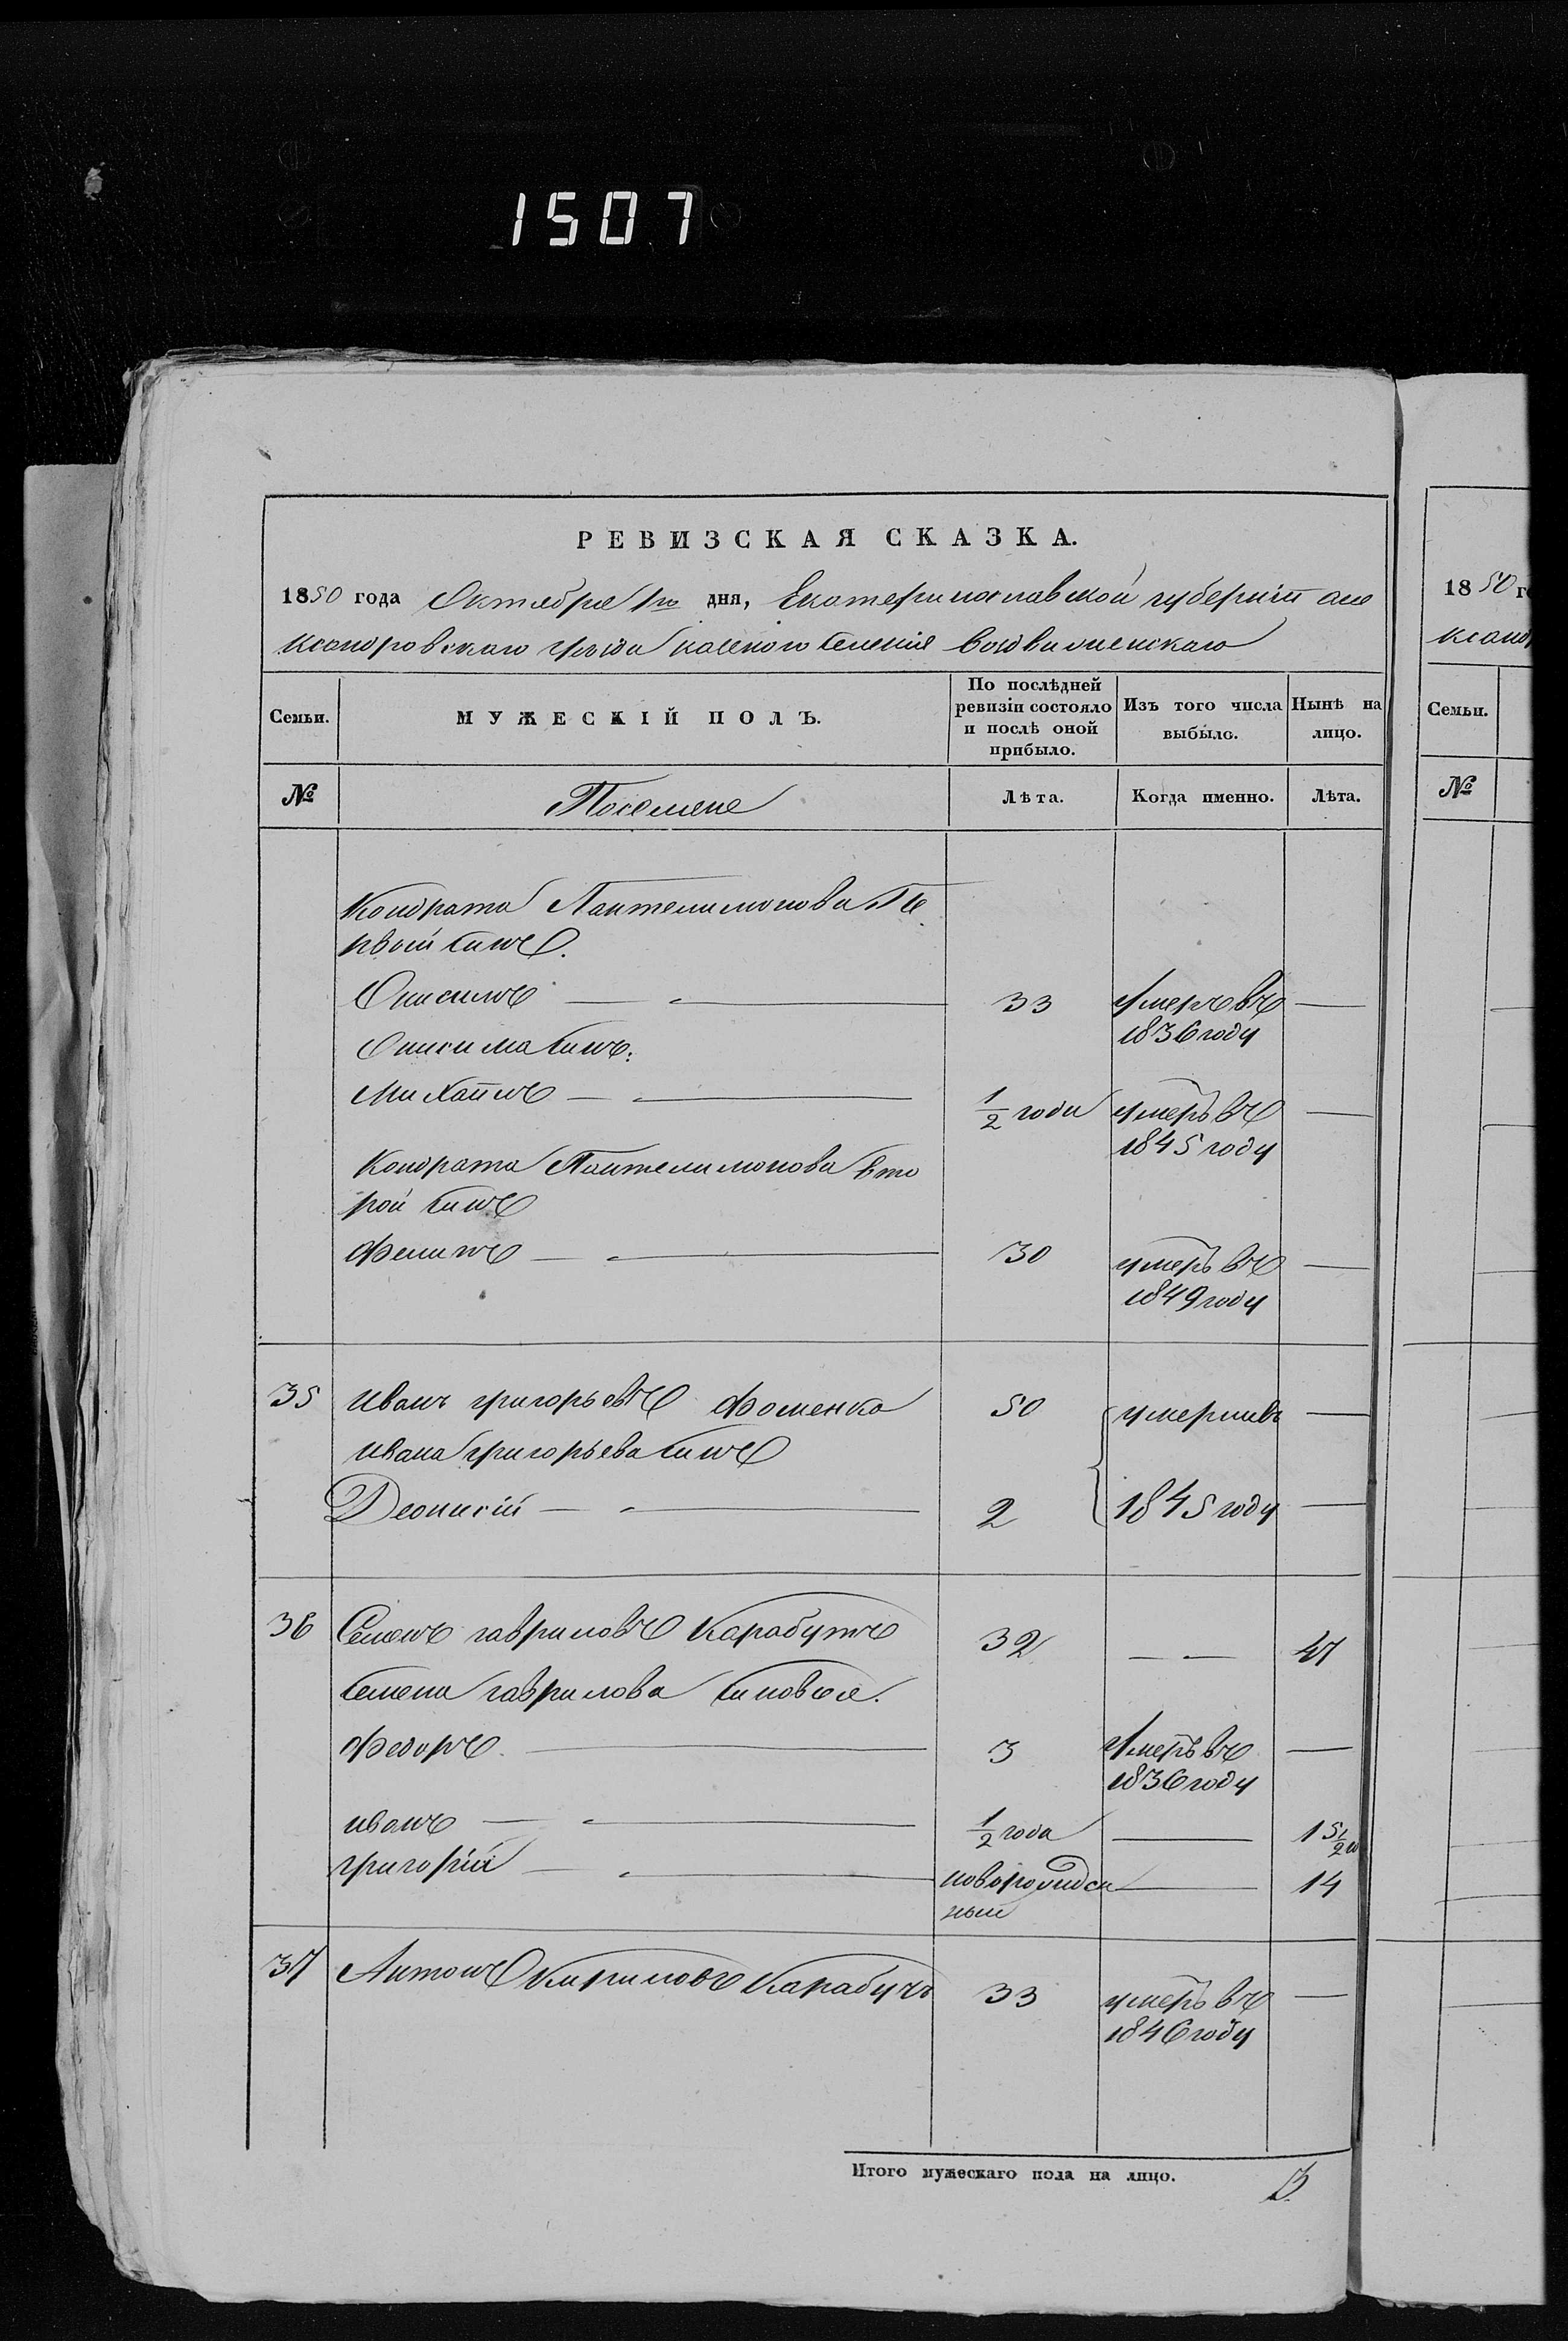 1507
РЕВИЗСКАЯ СКАЗКА.
1850 года Октября 1го дня, Екатеринославской губернiи але
ксандровскаго уезда казенного селения Воздвиженскаго
Семьи. МУЖЕСКІЙ ПОЛЪ. По послѣдней ревизіи состояло и послѣ оной прибыло. Изъ того числа выбыло. Нынѣ на лицо.
№ Поселяне Лѣта. Когда именно. Лѣта.
Кондрата Пантелимонова Пе
рвый синъ.
Онисимъ 33 Умеръ въ —
1836 году
Онисима синъ:
Михаилъ 1/2 года умеръ въ —
1845 году
Кондрата Пантелимонова вто
рой синъ
Филипъ 30 умеръ въ —
1849 году
35 Иванъ григорьевъ Фоменко 50 умершие —
Ивана григорьева синъ
Деонисiй 2 1845 году —
36 Семенъ гавриловъ Карабутъ 32 — — 47
Семена гаврилова синовья.
Федоръ 3 Умеръ въ —
1836 году
иванъ 1/2 года — 15 1/2
григорiй новорожден — 14
ный
37 Антонъ Кириловъ Карабутъ 33 умеръ въ —
1846 году
Итого мужескаго пола на лицо. 3.
18 50 г
ксанд
Семьи.
№